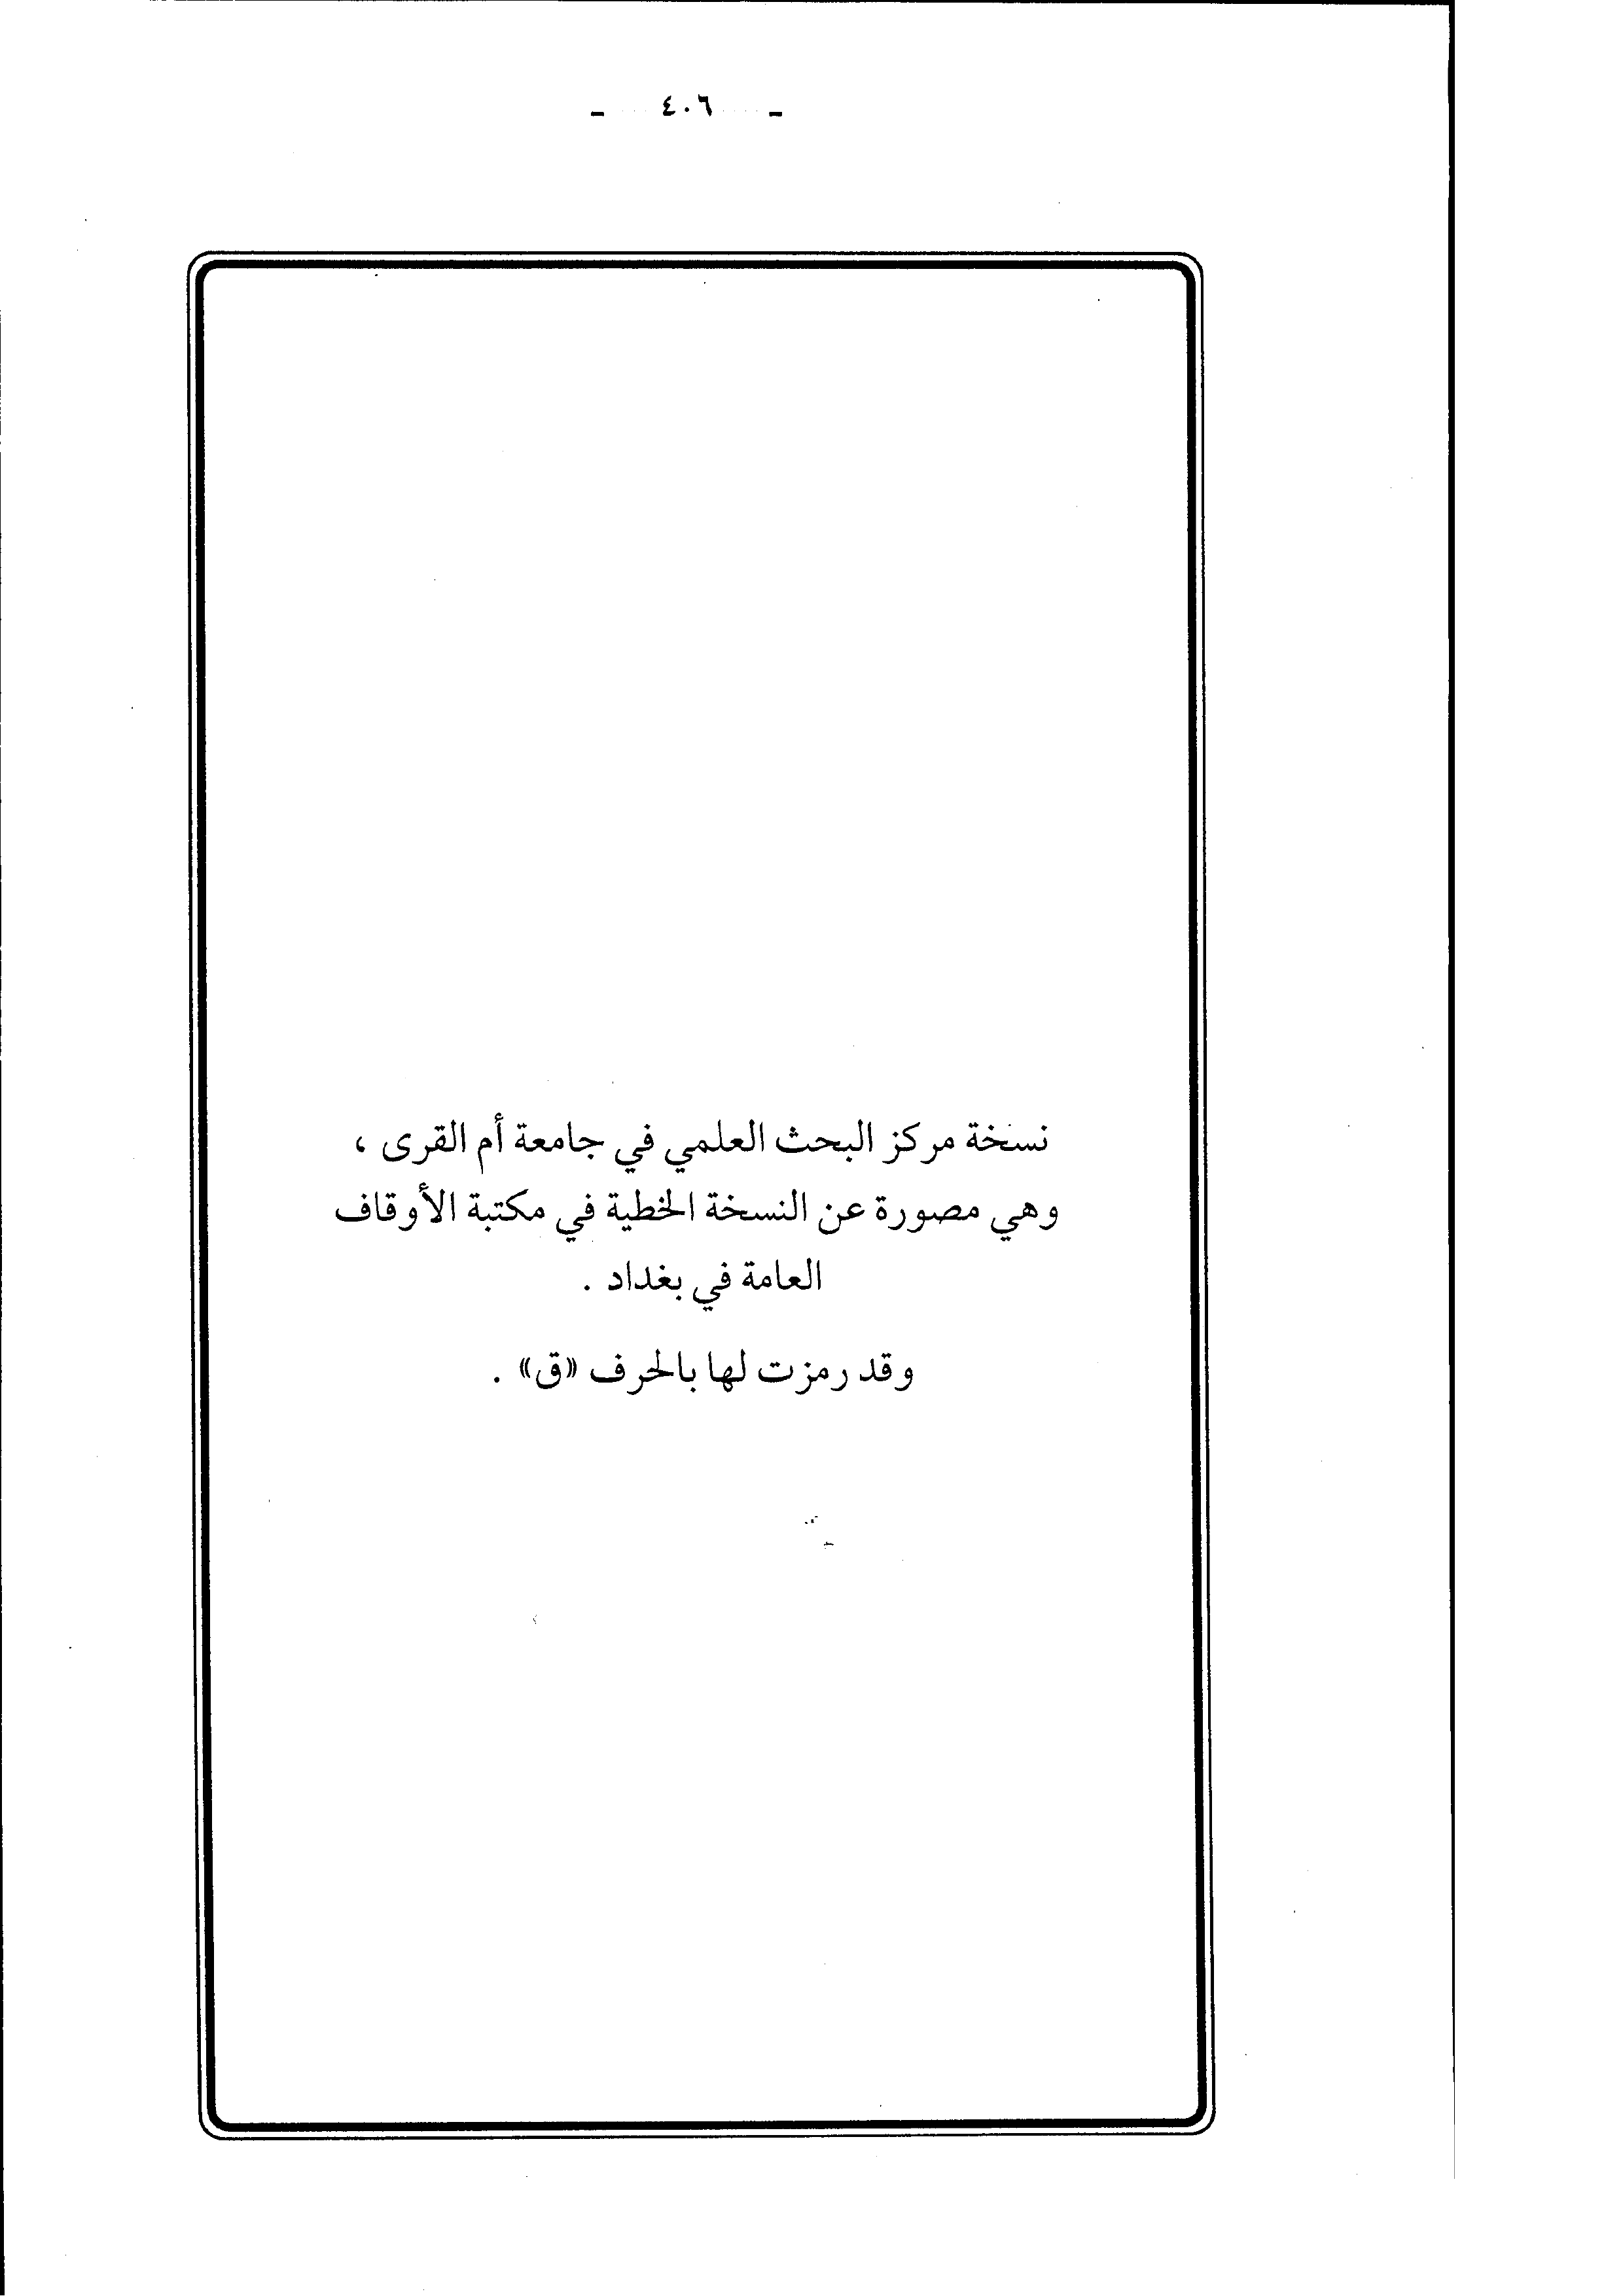 - ٤٠٦ -
نسخة مركز البحث العلمي في جامعة أم القرى ،
وهي مصورة عن النسخة الخطية في مكتبة الأوقاف
العامة في بغداد .
وقد رمزت لها بالحرف «ق» .